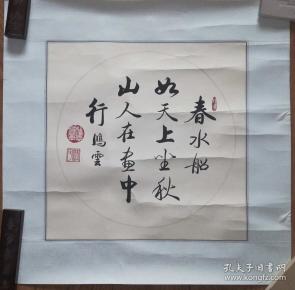 春水船
如天上坐秋
山人在画中
行鴻雲
孔夫子旧书网